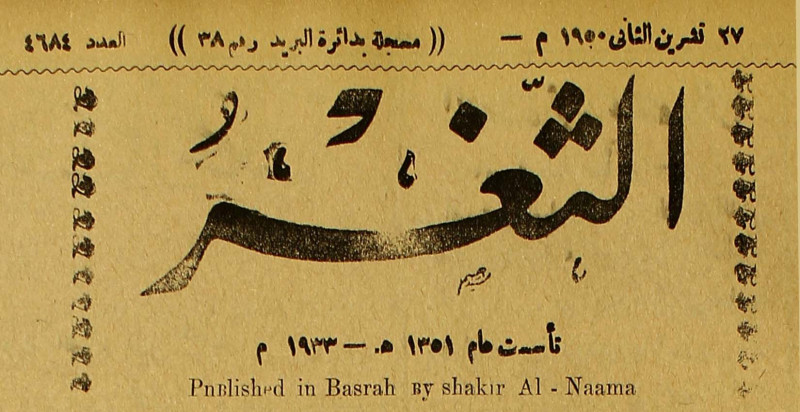 ٢٧ تشرين الثاني ١٩٥٠ م — (( مسجلة بدائرة البريد رقم ٣٨ )) العدد ٤٦٨٤
الثّغر
تأسست عام ١٣٥١ هـ — ١٩٣٣ م
Published in Basrah By shakir Al - Naama